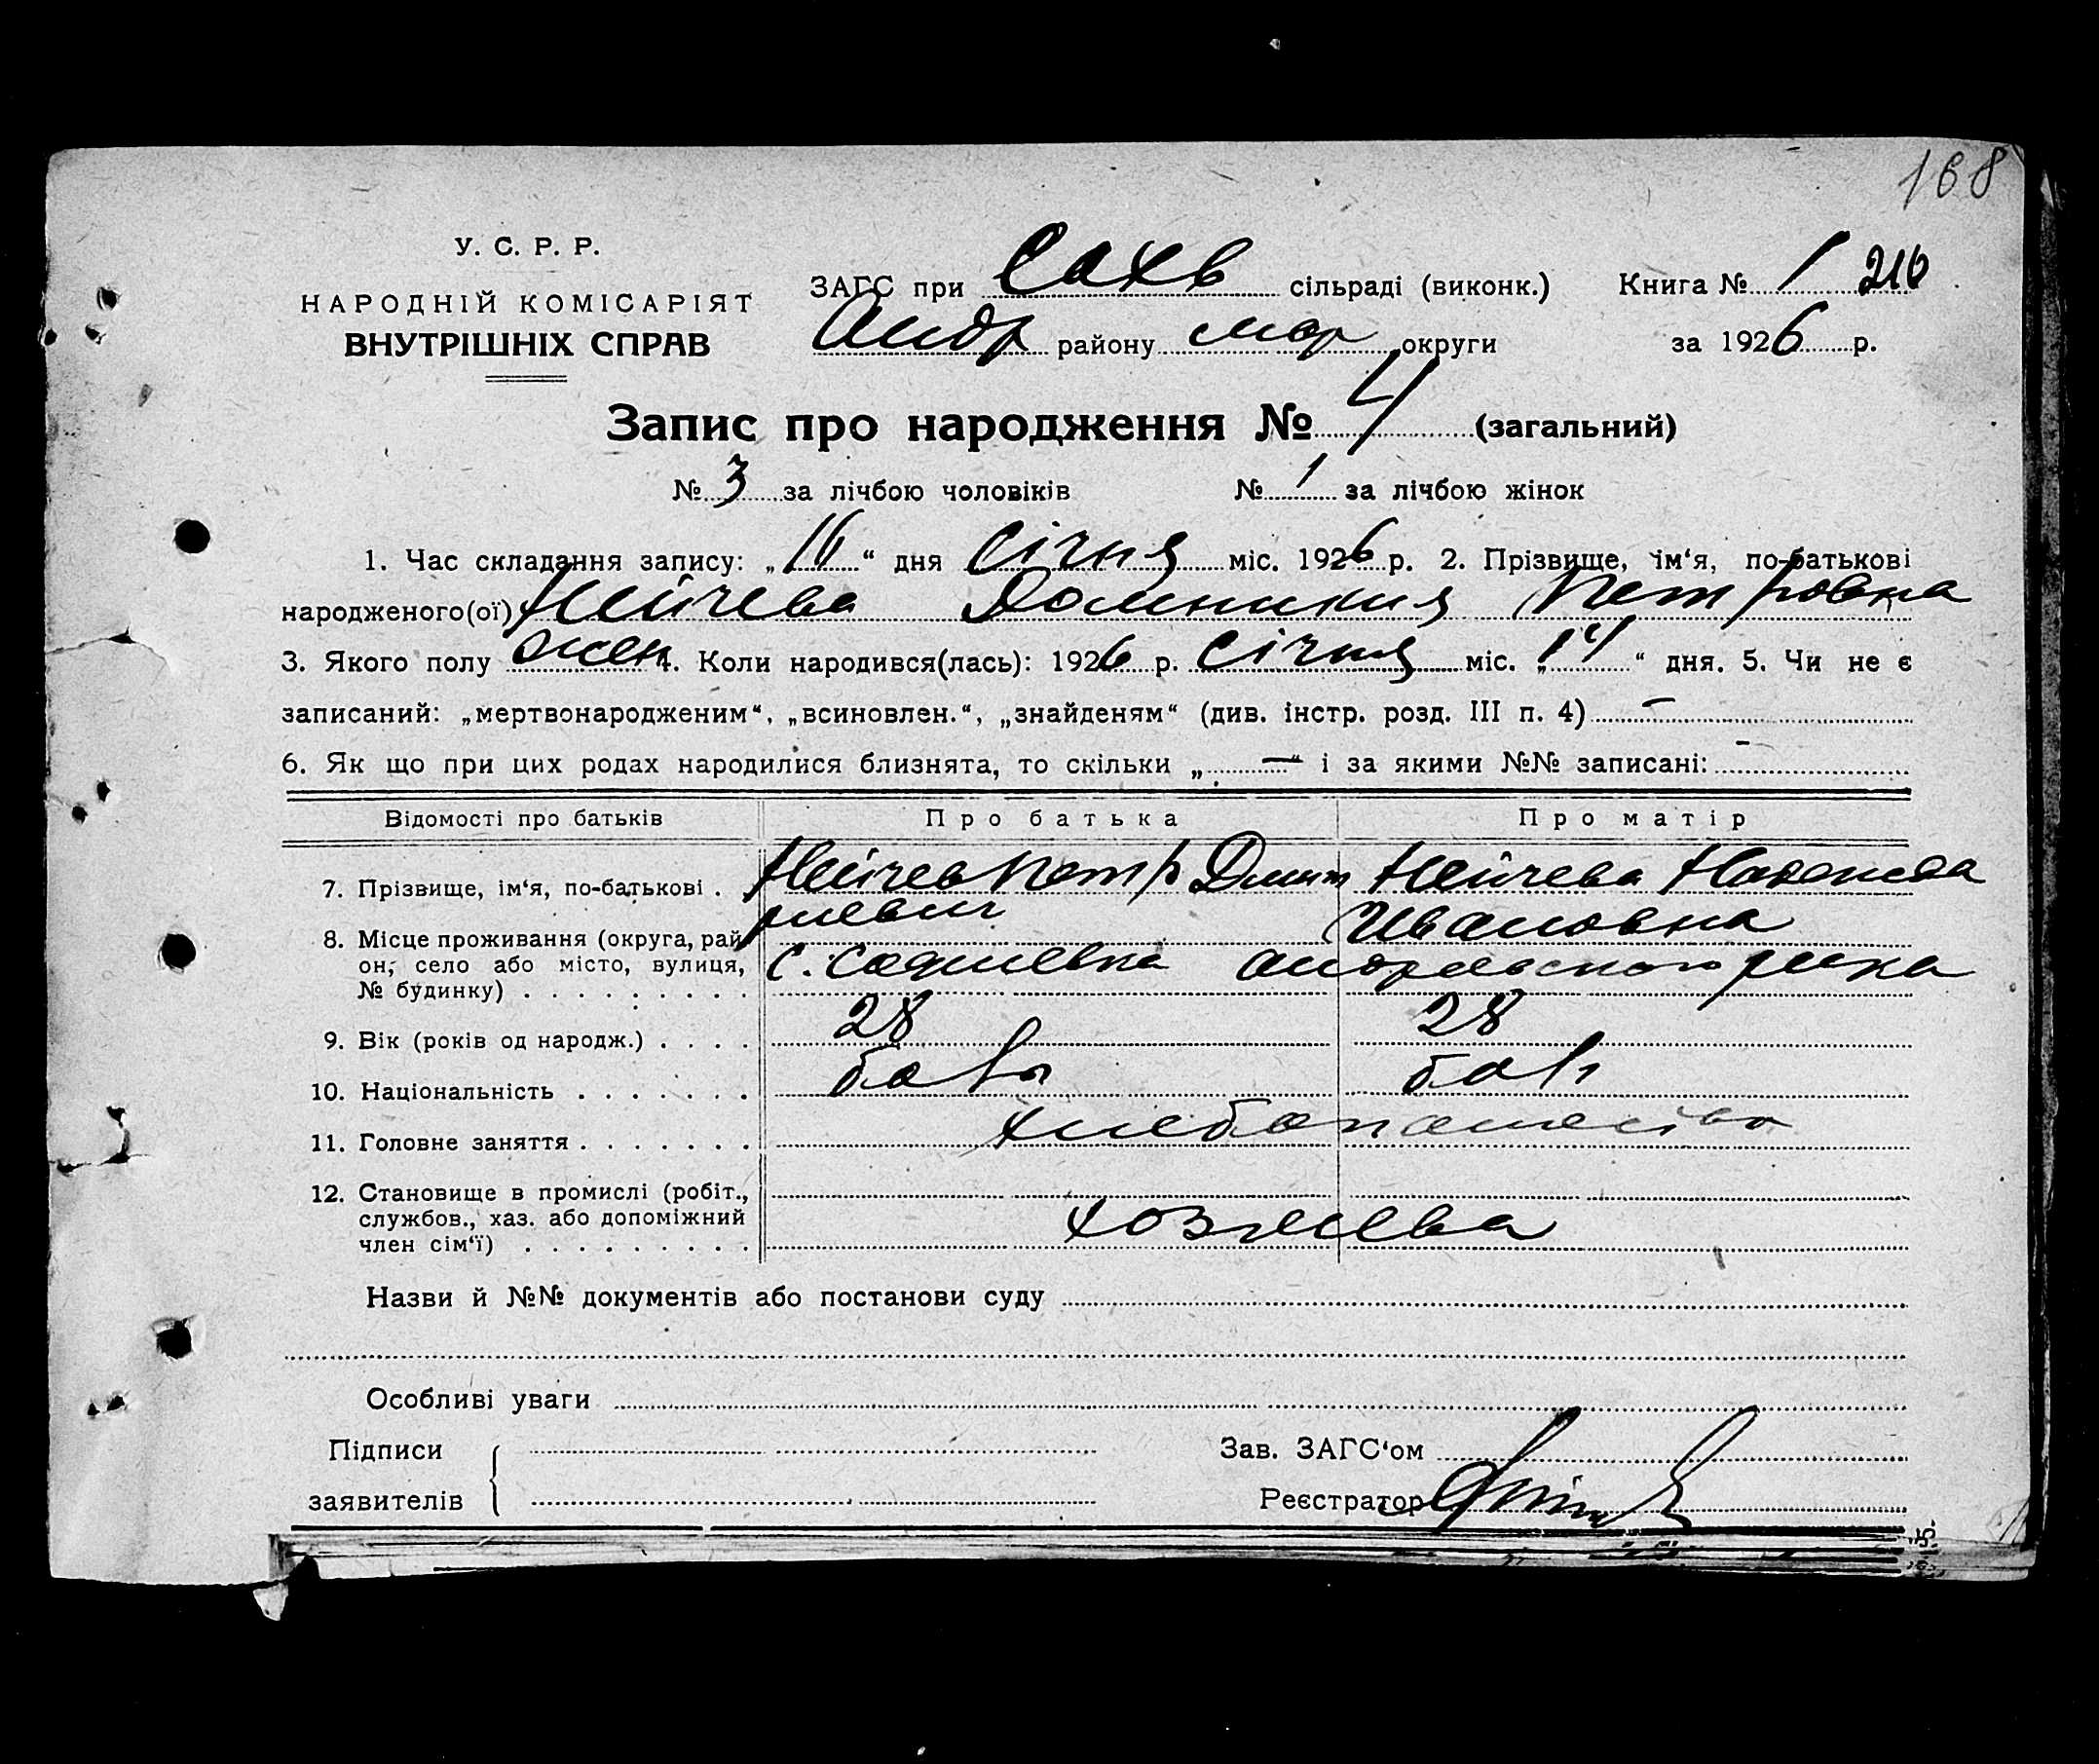 168
У. С. Р. Р.
НАРОДНІЙ КОМІСАРІЯТ
ВНУТРІШНІХ СПРАВ
ЗАГС при Сахв сільраді (виконк.)
Андр району мар округи
Книга № 1 216
за 1926 р.
Запис про народження № 4 (загальний)
№ 3 за лічбою чоловіків № 1 за лічбою жінок
1. Час складання запису: „16“ дня Січня міс. 1926 р. 2. Прізвище, ім‘я, по-батькові
народженого(ої) Нейчева Домникия Петровна
3. Якого полу жен 4. Коли народився(лась): 1926 р. Січня міс. „14“ дня. 5. Чи не є
записаний: „мертвонародженим“, „всиновлен.“, „знайденям“ (див. інстр. розд. III п. 4) —
6. Як що при цих родах народилися близнята, то скільки „—“ і за якими №№ записані: —
Відомості про батьків Про батька Про матір
7. Прізвище, ім‘я, по-батькові . Нейчев Петр Дмит Нейчева Надежда
риевич Ивановна
8. Місце проживання (округа, рай
он, село або місто, вулиця, С. Андреевского рика
№ будинку) . . . . . . . . .
9. Вік (років од народж.) . . . . 28 28
10. Національність . . . . . . . болг
11. Головне заняття . . . . . . . хлебопашество
12. Становище в промислі (робіт.,
службов., хаз. або допоміжний хозяева
член сім‘ї) . . . . . . . . .
Назви й №№ документів або постанови суду
Особливі уваги
Підписи
заявителів
Зав. ЗАГС‘ом
Реєстратор